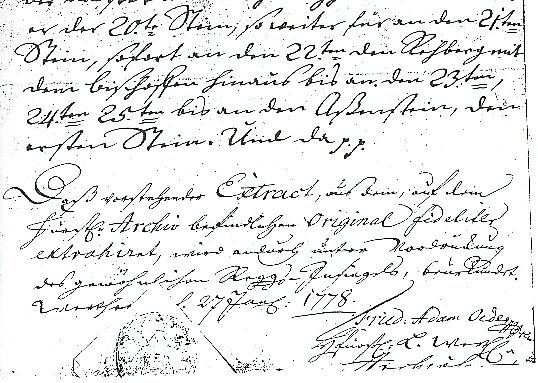 er der 20.te Stein, so weiter für an den 21.ten
Stein, sofort an den 22.ten den Rehberg mit
dem bischoffen hinaus bis an den 23.ten,
24ten 25ten bis an den Aßenstein, den
ersten Stein. Und da p. p.
Daß vorstehender Extract, aus dem, auf dem
Fürstl. Archiv befindlichen Original fideliter
extrahiret, wird andurch unter Vordrückung
des gewöhnlichen Reggs-Insiegels, beurkundet.
27 1778.
Fried. Adam
Fürstl. L.